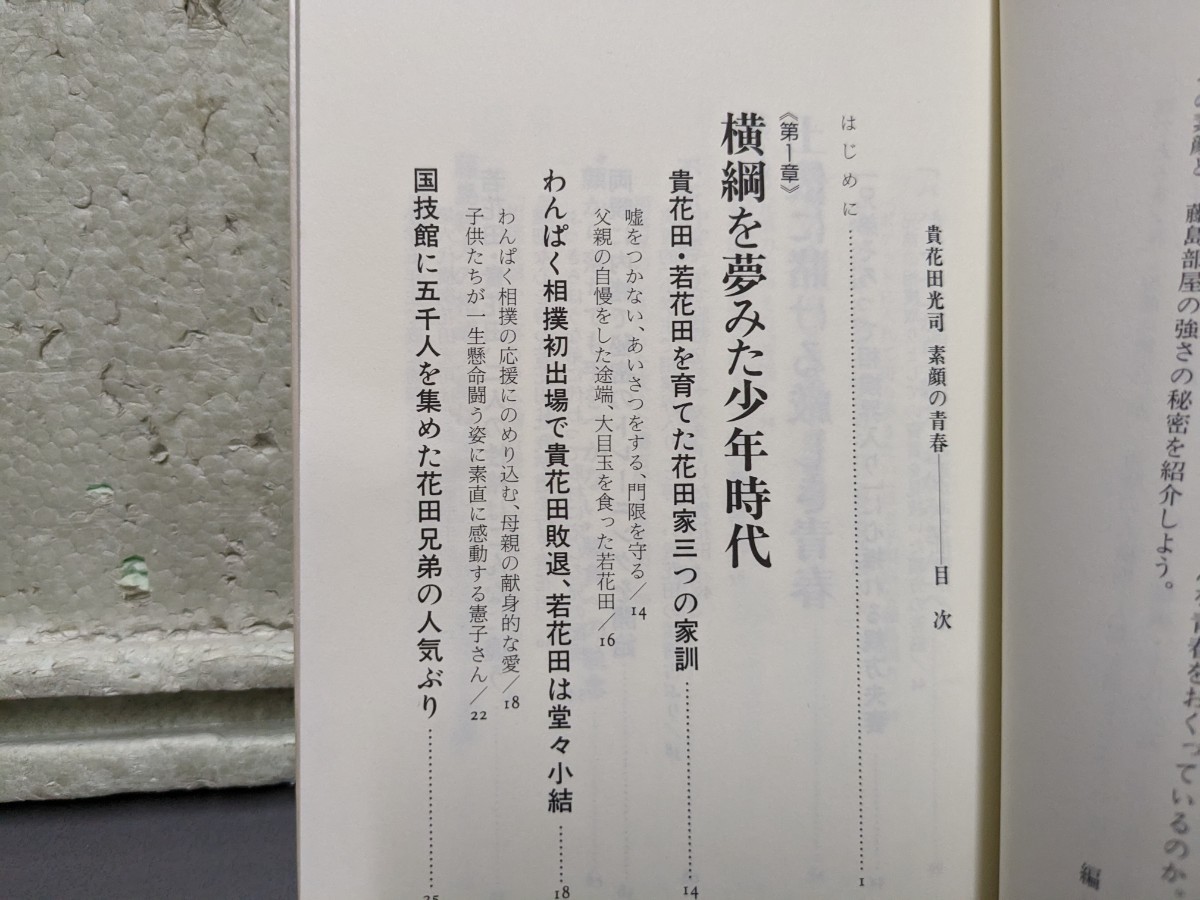 藤島部屋の強さの秘密を紹介しよう。
青春をおくっているのか。
編
貴花田光司 素顔の青春―――目次
はじめに……1
《第1章》
横綱を夢みた少年時代
貴花田・若花田を育てた花田家三つの家訓……14
嘘をつかない、あいさつをする、門限を守る/14
父親の自慢をした途端、大目玉を食った若花田/16
わんぱく相撲初出場で貴花田敗退、若花田は堂々小結……18
わんぱく相撲の応援にのめり込む、母親の献身的な愛/18
子供たちが一生懸命闘う姿に素直に感動する憲子さん/22
国技館に五千人を集めた花田兄弟の人気ぶり……25